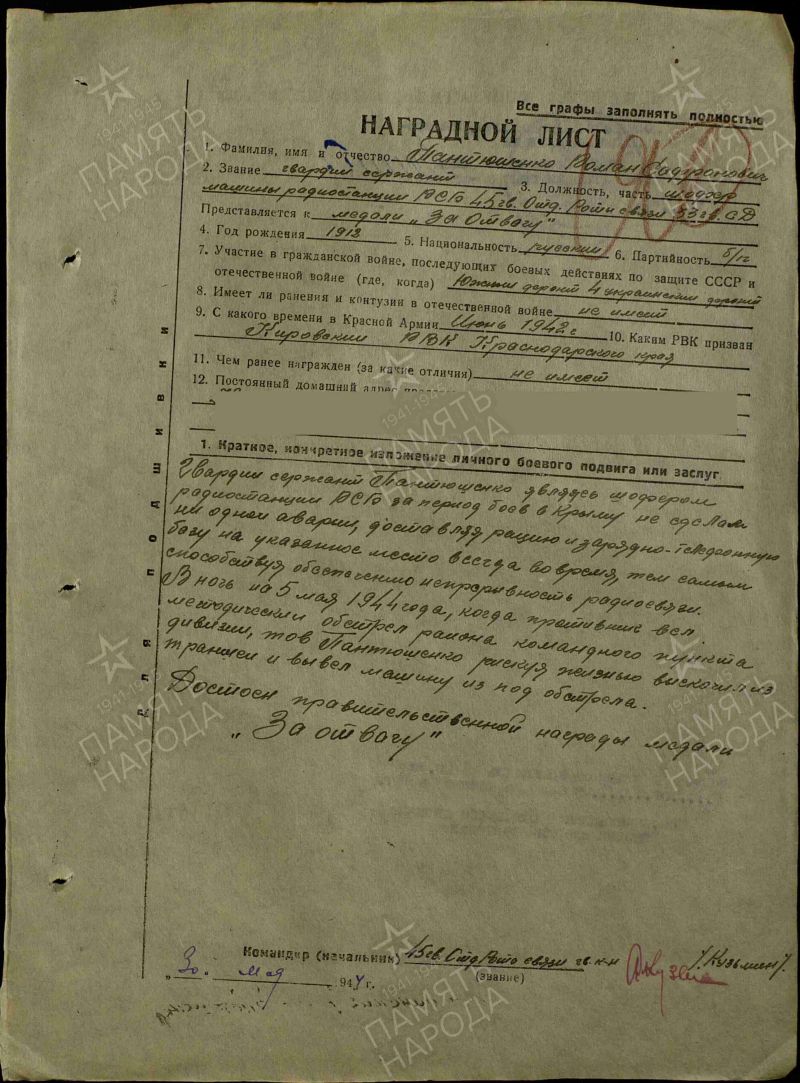 Все графы заполнять полностью
НАГРАДНОЙ ЛИСТ
1. Фамилия, имя и отчество Пантюшенко Роман
2. Звание гвардии сержант 3. Должность, часть шофер
машины радиостанции РСБ 45 гв. Отд. Роты связи 33 гв. СД
Представляется к медали „За Отвагу"
4. Год рождения 1913 5. Национальность русский 6. Партийность б/п
7. Участие в гражданской войне, последующих боевых действиях по защите СССР и
отечественной войне (где, когда) Южный фронт 4 украинский фронт
8. Имеет ли ранения и контузии в отечественной войне не имеет
9. С какого времени в Красной Армии Июнь 1942 г 10. Каким РВК призван
Кировский РВК Краснодарского края
11. Чем ранее награжден (за какие отличия) не имеет
12. Постоянный домашний адрес
1. Краткое, конкретное изложение личного боевого подвига или заслуг
Гвардии сержант Пантюшенко являясь шофером
радиостанции РСБ за период боев в Крыму не сделал
ни одной аварии, доставляя рацию и зарядно-
базу на указанное место всегда вовремя, тем самым
способствуя обеспечению непрерывность радиосвязи.
В ночь на 5 мая 1944 года, когда противник вел
методический обстрел района командного пункта
дивизии, тов Пантюшенко рискуя жизнью выскочил из
траншеи и вывел машину из под обстрела.
Достоен правительственной награды медали
„За отвагу"
Командир (начальник) 45 гв. Отд Роты связи гв. к-н /Кузьмин/
(звание)
„30" мая 1944 г.
Для подшивки
ПАМЯТЬ НАРОДА
1941-1945